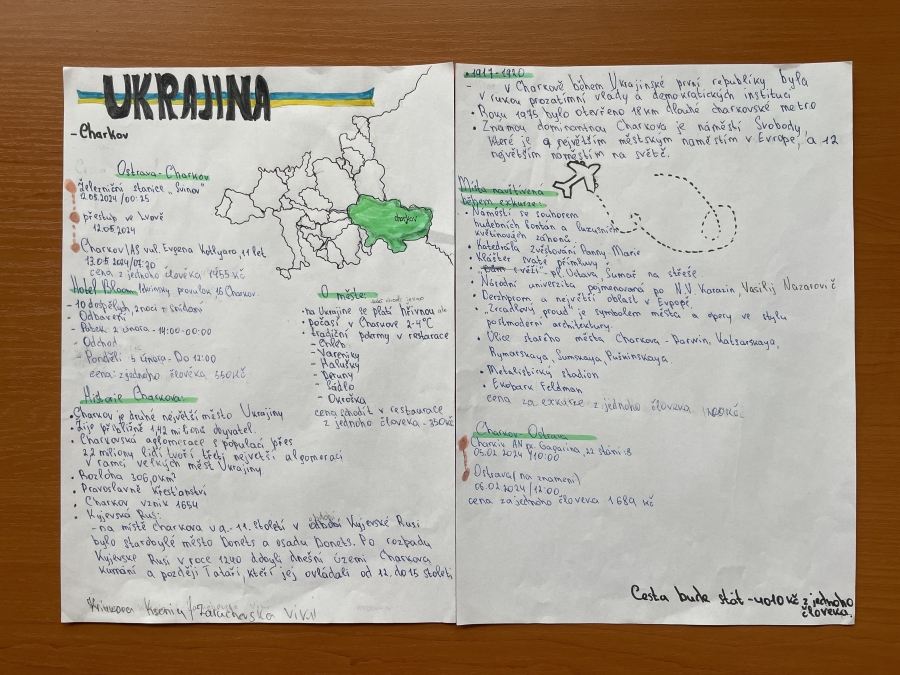 UKRAJINA
- Charkov
Ostrava - Charkov
Železniční stanice „Svinov"
2.02024 / 00:25
přestup ve Lvově
12.052024
Charkov /AS vul. Evgena Kotlyara, 11 let
13.052024/07:20
cena z jednoho člověka 1455 Kč
Hotel Bloom provulok, 16 Charkov.
- 10 dospělých, 2 noci + snídani
- Odbavení
- Pátek 2 února - 14:00-00:00
- Odchod
- Ponděli 5 února - Do 12:00
cena: z jednoho člověka 550 Kč
charkov
O měste:
· na Ukrajine se platí hřivnou
· počasí v Charkove 2-4°C
· tradiční pokrmy v restarace
- Chléb
- Vareniky
- Halušky
- Deruny
- Sádlo
- Okroška
cena schodit v restaurace
z jednoho človeka - 350 Kč
Historie Charkova:
· Charkov je druhé největší město Ukrajiny
· Žije přibližně 1,42 milionu obyvatel.
· Charkovská aglomerace s populací přes
2,2 miliony lidí tvoří třetí největší algomeraci
v rámci velkých měst Ukrajiny
· Rozloha 306,0 km²
· Pravoslavné křesťanství
· Charkov vznik 1654
· Kyjevská Rus:
- na místě charkova v 8.-11. století v Kyjevské Rusi
bylo starobylé město Donets a osadu Donets. Po rozpadu
Kyjevske Rusi v roce 1240 dobyli dnešní území Charkova
kumáni a později Tataři, kteří jej ovládali od 12. do 15 století
Ksenia / Vikol
· 1917-1920
- v Charkově během Ukrajinské první republiky byla
v rukou prozatímní vlády a demokratických institucí
· Roku 1975 bylo otevřeno 18 km dlouhé charkovské metro
· Známou dominantnou Charkova je náměstí Svobody,
které je 9 největším městským naměstím v Evropě, a 12
největším naměstím na světě.
Místa navštívena
během exkurze:
· Náměstí se souborem
hudebních fontán a luxusních
květinových záhonů.
· Katedrála Zvěstování Panny Marie
· Klášter svaté přímluvy
· „ s věží" pl. Ústava Šumař na střeše
· Národní univerzita pojmenovaná po N.V. Karazin, Vasilij Nazarovič
· Derzhprom a největší oblast v Evropě
· „Zrcadlový proud" je symbolem města a opery ve stylu
postmoderní architektury.
· Ulice starého města Charkova - Darwin, Katsarskaya,
Rymarskaya, Sumskaya Puškinskaya.
· Metalistický stadion
· Ekopark Feldman
cena za exkurze z jednoho človeka Kč
Charkov - Ostrava
Charkiv AN pr. Gagarina, 22 stání: 8
05.02 2024 / 10:00
Ostrava/ (na znamení)
06.02 2024 / 12:00
cena za jednoho človeka 1 689 Kč
Cesta bude stát - 4010 Kč z jednoho
človeka.